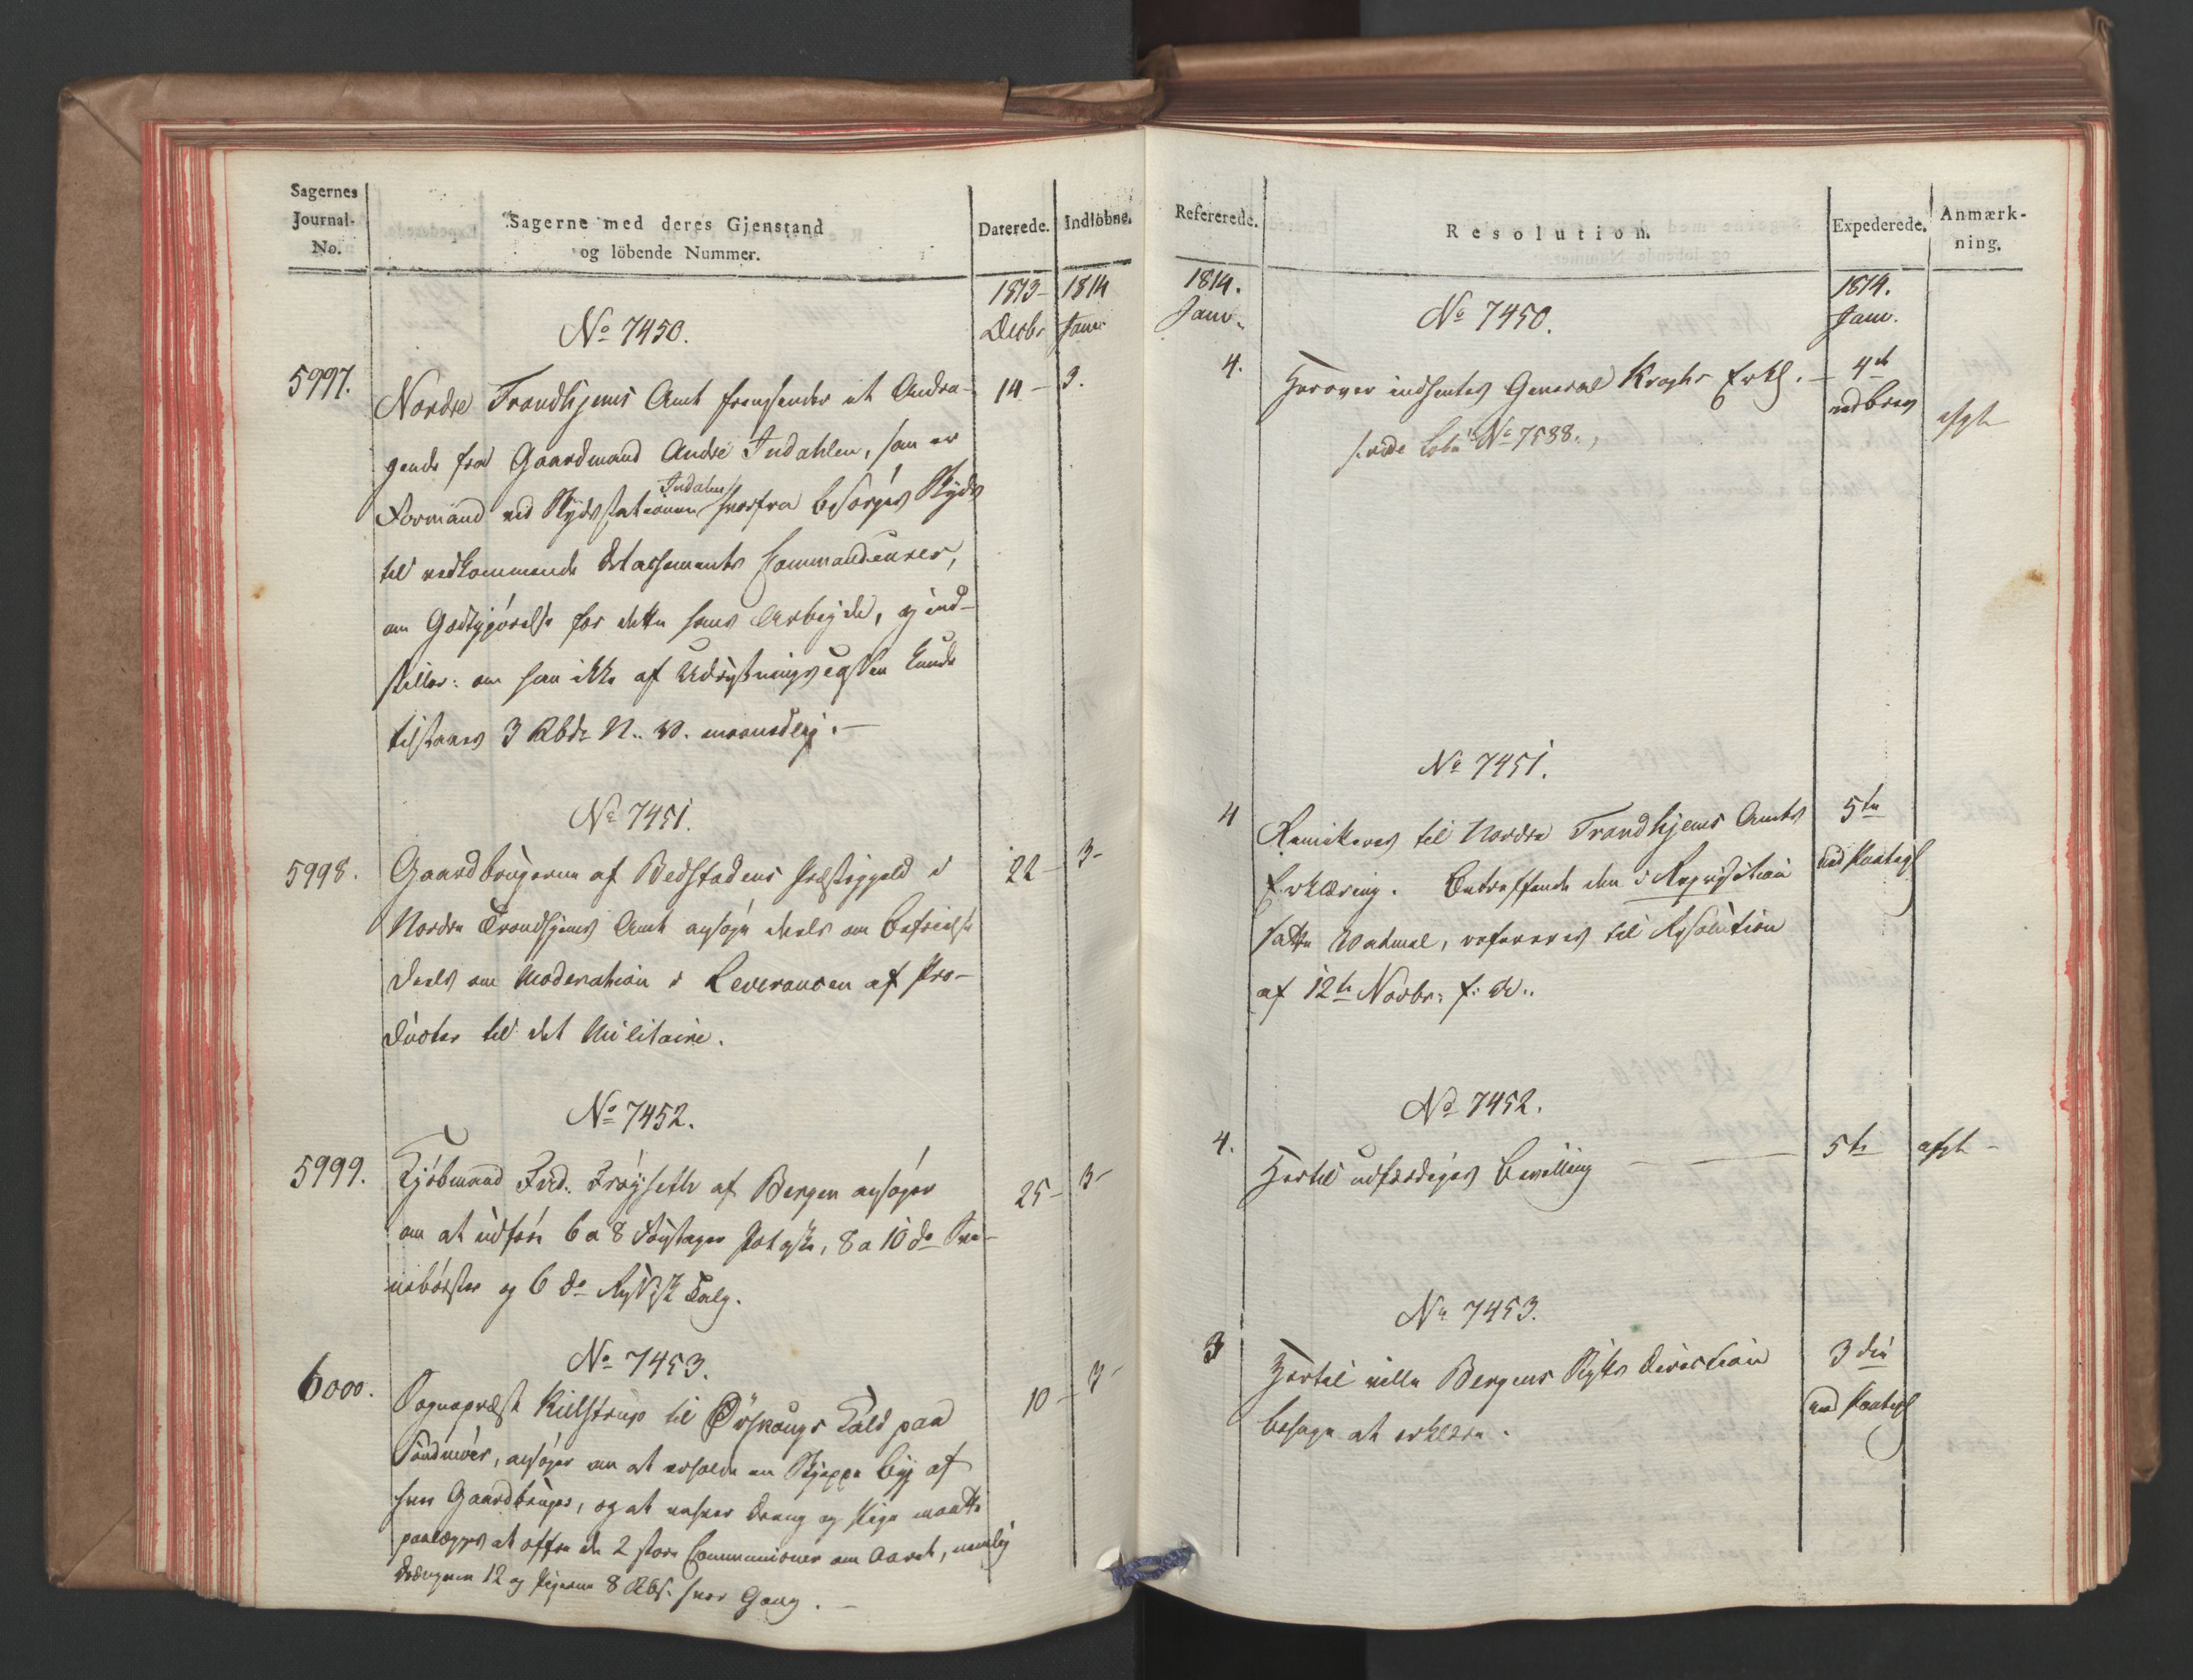 Sagernes
Journal-
No.
Sagerne med deres Gjenstand
og löbende Nummer.
Daterede.
Indlöbne.
1813-
Decbr
1814
Janr
No 7450.
5997.
Nordre Trondhjems Amt fremsender et Andra-
gende fra Gaardmand Andre Indahlen, som er
Formand ved Skydsstationen Indalen hvorfra besörges Skyds
til vedkommende Detachements Commandeurer,
om Godtgjörelse for dette hans Arbeyde, og ind-
stiller: om han ikke af Udrustningscassen kunde
tilstaaes 3 Rbdr N. V. maanedlig.-
14 - 3.
No 7451.
5998.
Gaardbrugerne af Bedstadens Præstegjeld i
Nordre Trondhjems Amt ansöge deels om Befrielse
deels om Moderation i Leverancen af Pro-
ducter til det Militaire.
22 - 3-
No 7452.
5999.
Kjöbmand Fred. Fröyseth af Bergen ansöger
om at udföre 6 a 8 Fustager Potaske, 8 a 10 do Svi-
nebörster og 6 do Russisk Talg.
25- 3-
No 7453.
6000.
Sognepræst Kielstrup til Örskougs Kald paa
Söndmöer, ansöger om at erholde en Skjeppe Byg af
hver Gaardbruger, og at enhver Dreng og Pige maatte
paalægges at offre de 2 store Communioner om Aaret, nemlig
Drengene 12 og Pigerne 8 Rbs. hver Gang.-
10 - 3-
Refererede.
Resolution.
Expederede.
Anmærk-
ning.
1814.
Janr.
1814.
Janr.
No 7450.
4.
Herover indhentes General Kroghs Erkl.-
s. vide Lobn No 7588.,
4de
ved Brev
afgt
No 7451.
4
Remitteres til Nordre Trondhjems Amts
Erklæring. Betreffende den i Reqvisition
satte Vadmel, refereres til Resolution
af 12te Novbr: f: A..
5te
ved Paategn
No 7452.
4.
Hertil udfærdiges Bevilling
5te
afgt -
No 7453.
3
Hertil ville Bergens Stifts Direction
behage at erklære.
3die
ved Paategn